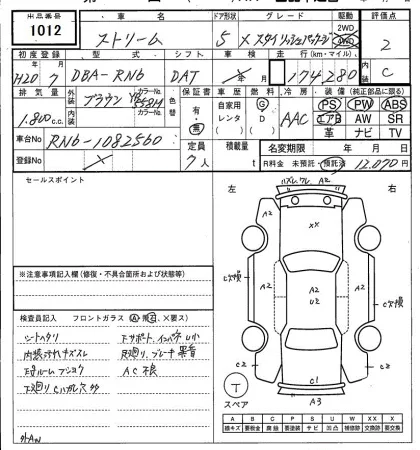 出品番号 車名 ドア形状 グレード 駆動 評価点
1012 ストリーム 5 X スタイリッシュパッケージ 2WD 4WD 2
初度登録 型式 シフト 車検 走行(km・マイル) 内装
H20年 7月 DBA-RN6 DAT 年 月 174280 C
排気量 外装 カラーNo. 色替 保証書 車歴 燃費 冷房 装備(純正部品に限る)
1,800c.c. ブラウン YR 有・無 自家用 レンタ G D AAC PS PW ABS
内装 カラーNo. エアB AW SR
革 ナビ TV
車台No RN6-1082560 定員 積載量 名変期限 年 月 日
登録No 7人 t R料金 未預託 預託済 12,070円
セールスポイント
左 右
A2
XX
A2 A2 A2
U2
C2 C2
C1
A3
T
スペア
※注意事項記入欄(修復・不具合箇所および状態等)
検査員記入 フロントガラス (A 飛石、×要ス)
シートヘタリ 下サポート、インパネ U小
内装汚れキズスレ 足廻り、ブレーキ異音
AC不良
外AW
A B C P S U W X XX X
線キズ 要板金 腐蝕 要塗装 サビ 凹凸 補修跡 要交換 交換跡 要交換